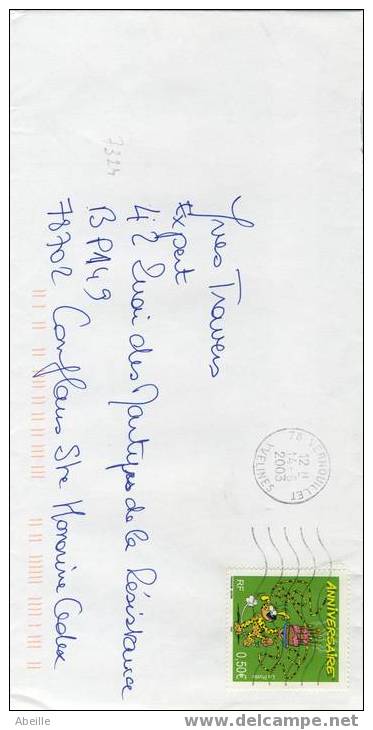 Yves Travers
Expert
42 Quai des Martyrs de la Résistance
BP149
78702 Conflans Ste Honorine Cedex
7324
78 VERNOUILLET
12 H
14-
2003
YVELINES
ANNIVERSAIRE
RF
0,50€
La Poste
Abeille
www.delcampe.net